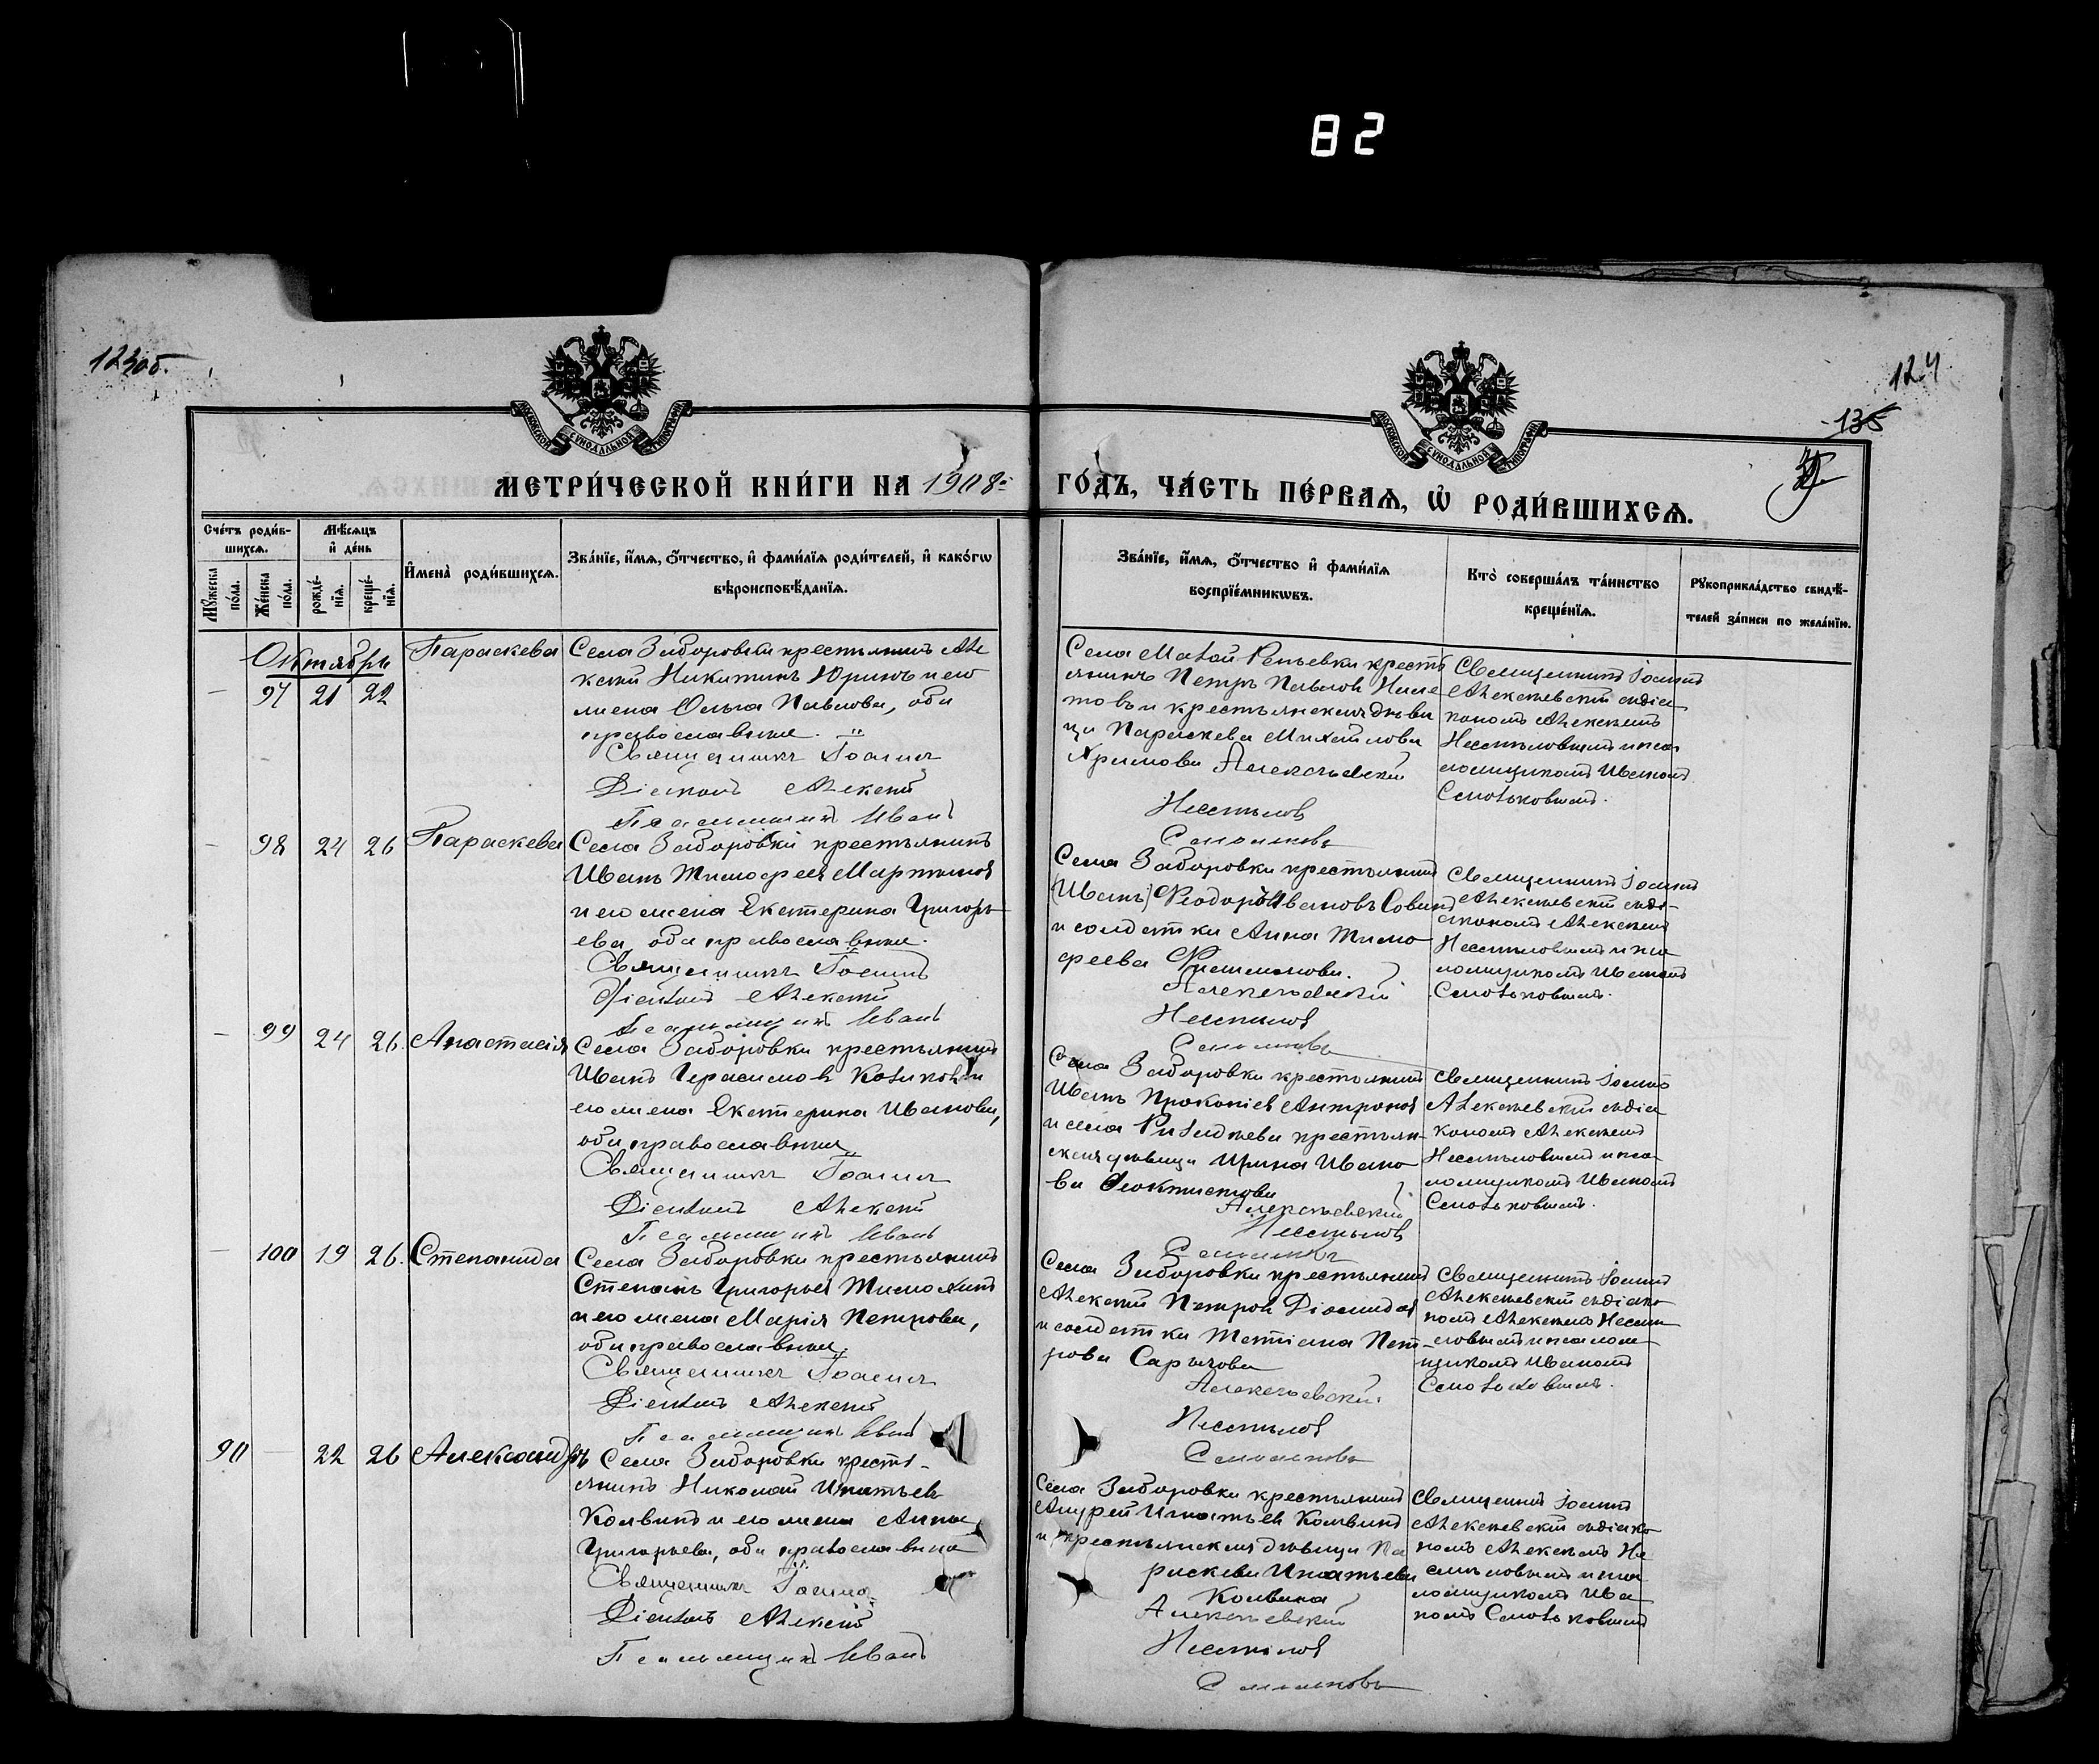 82
123об.
124
135
МОСКОВСКОЙ СѴНОДАЛЬНОЙ ТИПОГРАФІИ
МОСКОВСКОЙ СѴНОДАЛЬНОЙ ТИПОГРАФІИ
МЕТРИ́ЧЕСКОЙ КНИ́ГИ НА 1908й ГО́ДЪ, ЧА́СТЬ ПЕ́РВАѦ, Ѡ҆ РОДИ́ВШИХСѦ.
Сче́тъ роди́в-
шихсѧ.
Мꙋ́жеска по́ла.
Же́нска по́ла.
Мѣ́сѧцъ
и҆ де́нь
рожде́-
нїѧ.
креще́-
нїѧ.
И҆мена̀ роди́вшихсѧ.
Зва́нїе, и҆́мѧ, ѻ҆́тчество, и҆ фами́лїѧ роди́телей, и҆ како́гѡ
вѣроисповѣ́данїѧ.
Зва́нїе, и҆́мѧ, ѻ҆́тчество и҆ фами́лїѧ
воспрїе́мникѡвъ.
Кто̀ соверша́лъ та́инство
креще́нїѧ.
Рꙋкоприкла́дство свидѣ́-
телей за́писи по жела́нїю.
Октябрь
— 97 21 22
Параскева
Села Заборовки крестьянинъ Але
ксѣй Никитинъ Юринъ и его
жена Ольга Павлова, оба
православные.
Священникъ Іоаннъ
Діаконъ Алексѣй
Псаломщикъ Иванъ
Села Малой Репьевки кресть
янинъ Петръ Павловъ
и крестьянская дѣви
ца Параскева Михайлова
Алексѣевскій
Несмѣловъ
Самольковъ
Священникъ Іоаннъ
Алексѣевскій съ діа
кономъ Алексѣемъ
Несмѣловымъ и пса
ломщикомъ Иваномъ
Самольковымъ.
— 98 24 26
Параскева
Села Заборовки крестьянинъ
Иванъ Тимофеевъ Мартыновъ
и его жена Екатерина Григорь
ева, оба православные.
Священникъ Іоаннъ
Діаконъ Алексѣй
Псаломщикъ Иванъ
Села Заборовки крестьянинъ
(Иванъ) Феодоръ Ивановъ
и солдатка Анна Тимо
феева
Алексѣевскій
Несмѣловъ
Самольковъ
Священникъ Іоаннъ
Алексѣевскій съ ді-
акономъ Алексѣемъ
Несмѣловымъ и пса
ломщикомъ Иваномъ
Самольковымъ.
— 99 24 26.
Анастасія
Села Заборовки крестьянинъ
Иванъ Герасимовъ и
его жена Екатерина Иванова,
оба православные
Священникъ Іоаннъ
Діаконъ Алексѣй
Псаломщикъ Иванъ
Села Заборовки крестьянинъ
Иванъ Прокопіевъ Антроповъ
и села крестьян-
ская дѣвица Ирина Ивано
ва Феоктистова
Алексѣевскій
Несмѣловъ
Самольковъ
Священникъ Іоаннъ
Алексѣевскій съ діа
кономъ Алексѣемъ
Несмѣловымъ и пса
ломщикомъ Иваномъ
Самольковымъ.
— 100 19 26.
Степанида
Села Заборовки крестьянинъ
Степанъ Григорьевъ Тимохинъ
и его жена Марія Петрова,
оба православные.
Священникъ Іоаннъ
Діаконъ Алексѣй
Псаломщикъ Иванъ
Села Заборовки крестьянинъ
Алексѣй Петровъ Діомидовъ
и солдатка Татіана Пет-
рова Сарычова
Алексѣевскій
Несмѣловъ
Самольковъ
Священникъ Іоаннъ
Алексѣевскій съ діако
номъ Алексѣемъ Несмѣ
ловымъ и псалом
щикомъ Иваномъ
Самольковымъ.
90 — 22 26
Александръ
Села Заборовки кресть-
янинъ Николай Игнатьевъ
Колвинъ и его жена Анна
Григорьева, оба православные
Священникъ Іоаннъ
Діаконъ Алексѣй
Псаломщикъ Иванъ
Села Заборовки крестьянинъ
Андрей Игнатьевъ Колвинъ
и крестьянская дѣвица Па
раскева Игнатьева
Колвина
Алексѣевскій
Несмѣловъ
Самольковъ
Священникъ Іоаннъ
Алексѣевскій съ діако
номъ Алексѣемъ Не
смѣловымъ и пса
ломщикомъ Ива
номъ Самольковымъ